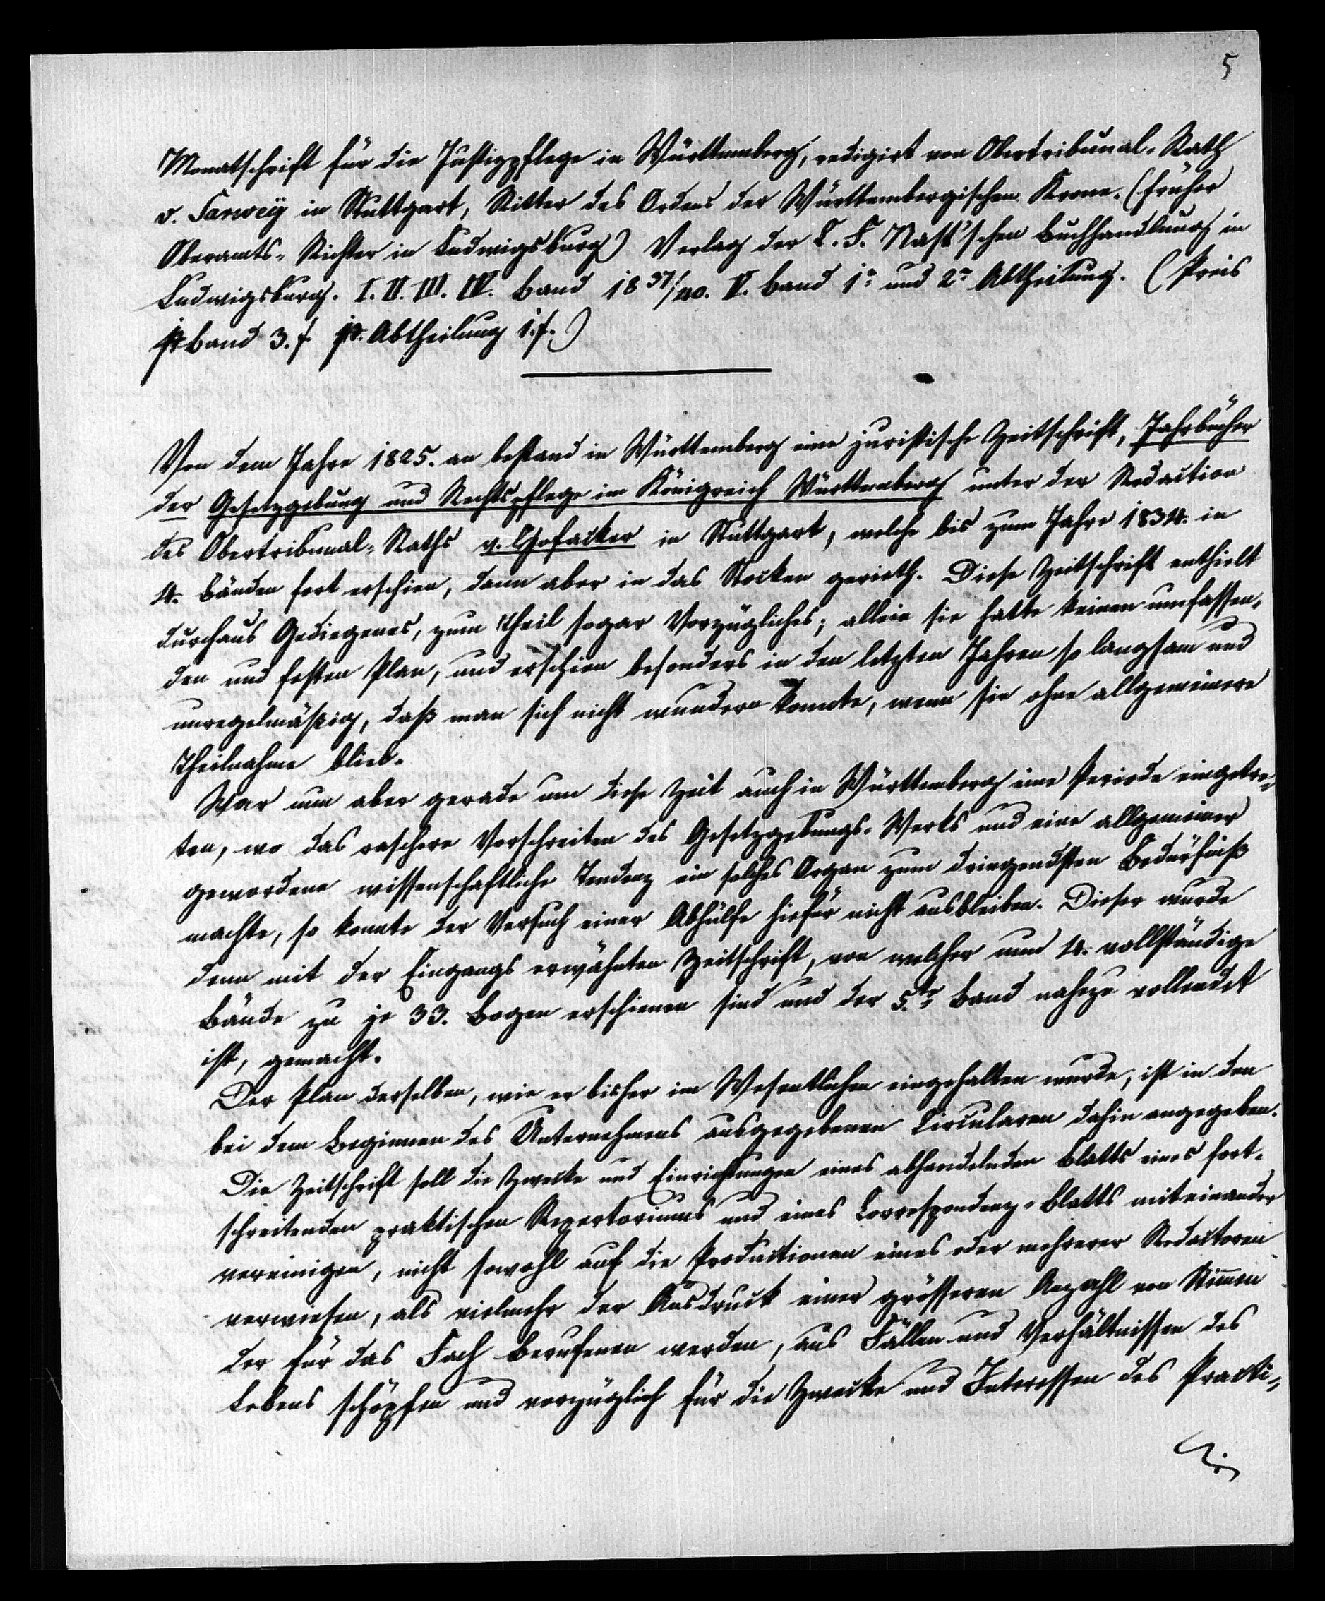 5
Monatschrift für die Justizpflege in Württemberg, redigirt von Obertribunal-Rath
v. Sarwey in Stuttgart, Ritter des Ordens der Württembergischen Krone. (früher
Oberamts-Richter in Ludwigsburg) Verlag der C. F. Nast'schen Buchhandlung in
Ludwigsburg. I. II. III. IV. Band 1837/40. V. Band 1e und 2e Abtheilung. (Preis
pr Band 3. f pr. Abtheilung 1. f.)
Von dem Jahre 1825. an bestand in Württemberg eine juristische Zeitschrift, Jahrbücher
der Gesetzgebung und Rechtspflege im Königreich Württemberg unter der Redaction
des Obertribunal-Raths v. Hofacker in Stuttgart, welche bis zum Jahre 1834. in
4. Bänden fort erschien, dann aber in das Stocken gerieth. Diese Zeitschrift enthielt
durchaus Gediegenes, zum Theil sogar Vorzügliches; allein sie hatte keinen umfassen-
den und festen Plan, und erschien besonders in den letzten Jahren so langsam und
unregelmäßig, daß man sich nicht wundern konnte, wenn sie ohne allgemeinere
Theilnahme blieb.
War nun aber gerade um diese Zeit auch in Württemberg eine Periode eingetre-
ten, wo das raschere Vorschreiten des Gesetzgebungs-Werks und eine allgemeiner
gewordene wissenschaftliche Tendenz ein solches Organ zum dringendsten Bedürfniß
machte, so konnte der Versuch einer Abhülfe hiefür nicht ausbleiben. Dieser wurde
denn mit der Eingangs erwähnten Zeitschrift, von welcher nun 4. vollständige
Bände zu je 33. Bogen erschienen sind und der 5.te Band nahezu vollendet
ist, gemacht.
Der Plan derselben, wie er bisher im Wesentlichen eingehalten wurde, ist in den
bei dem Beginnen des Unternehmens ausgegebenen Circularen dahin angegeben:
Die Zeitschrift soll die Zwecke und Einrichtungen eines abhandelnden Blatts eines fort-
schreitenden praktischen Repertoriums und eines Correspondenz-Blatts miteinander
vereinigen, nicht sowohl auf die Productionen eines oder mehrerer Redactoren
verwiesen, als vielmehr der Ausdruck einer grösseren Anzahl von Stimmen
der für das Fach Berufenen werden, aus Fällen und Verhältnissen des
Lebens schöpfen und vorzüglich für die Zwecke und Interessen des Practi-